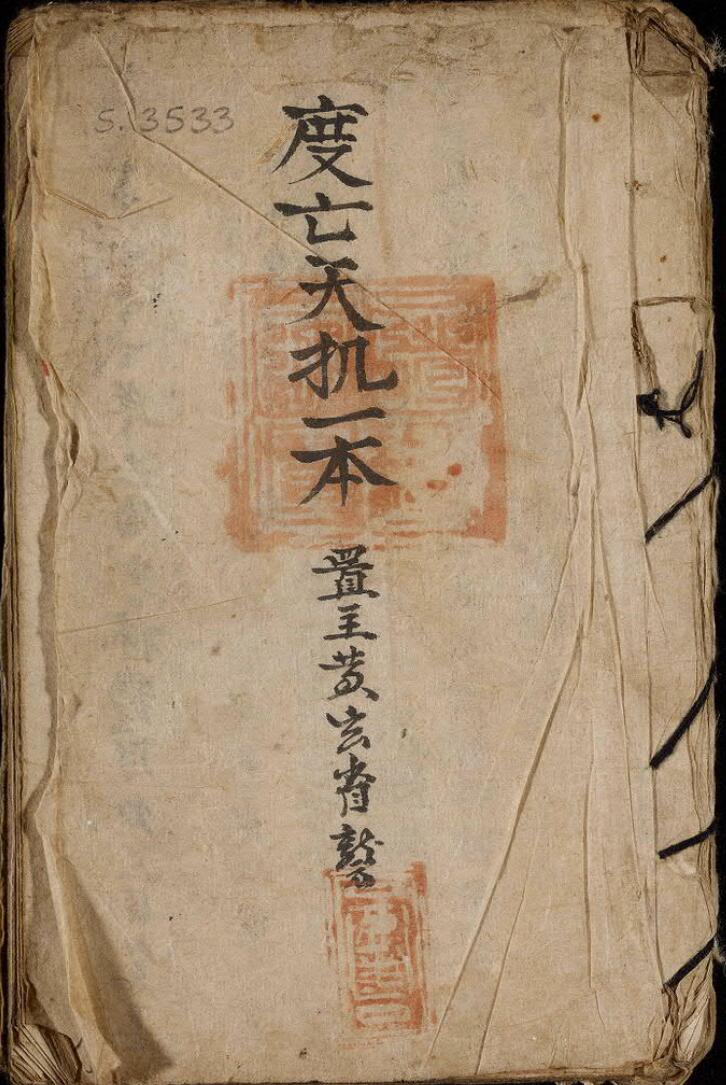 S. 3533
度亡天机一本
置主黄玄肖